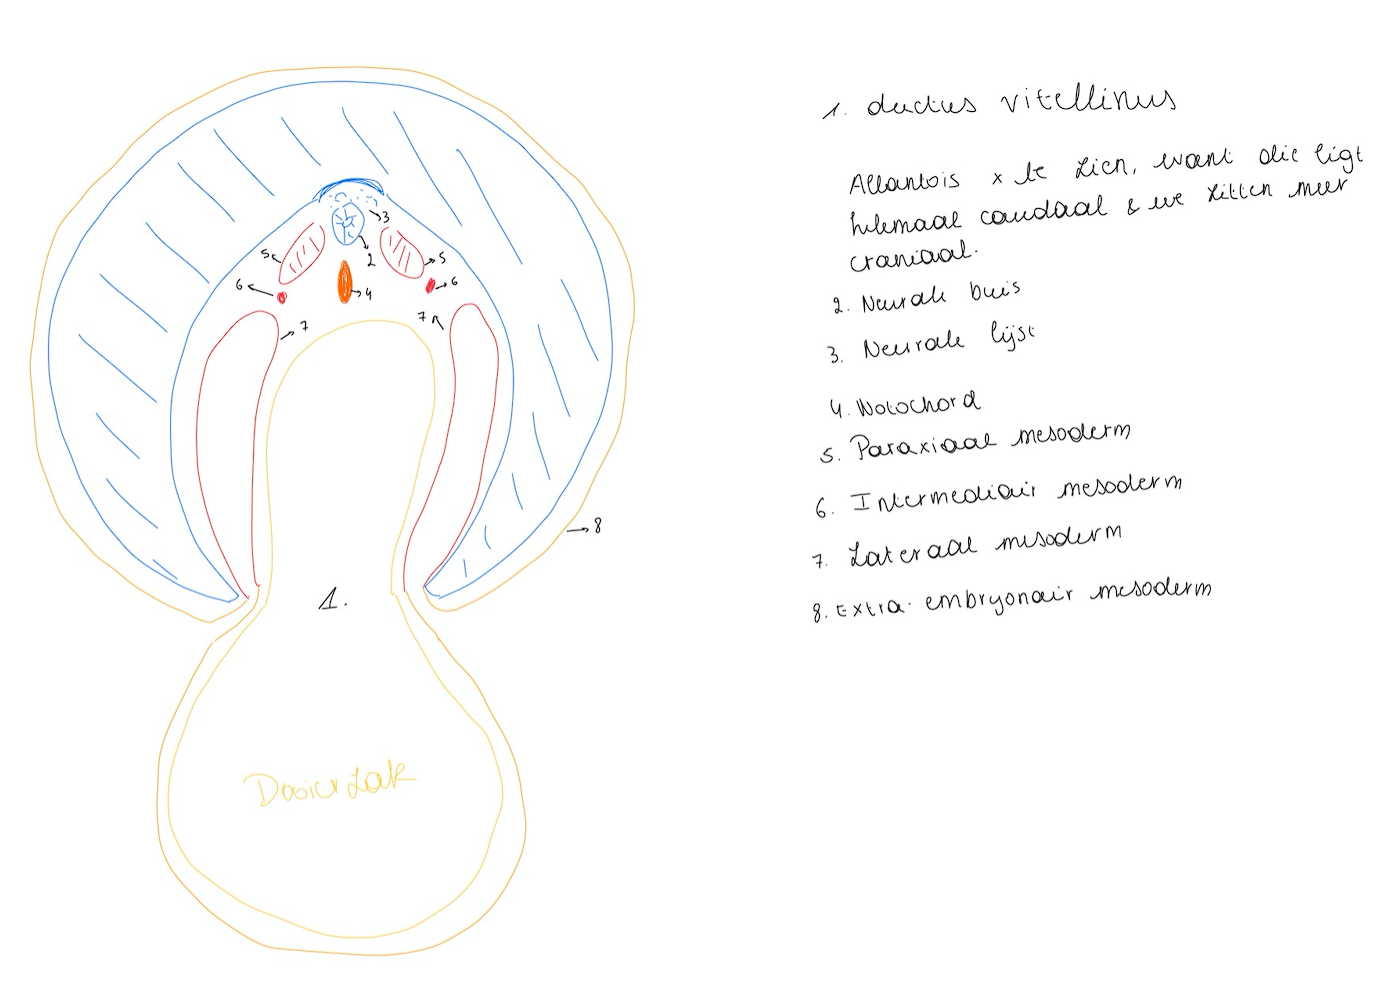 1. ductus vitellinus
Allantois x te zien, want die ligt
helemaal caudaal & we zitten meer
craniaal.
2. Neurale buis
3. Neurale lijst
4. Notochord
5. Paraxiaal mesoderm
6. Intermediair mesoderm
7. Lateraal mesoderm
8. Extra-embryonair mesoderm
3
2
5
5
6
6
4
7
7
8
1.
Dooierzak